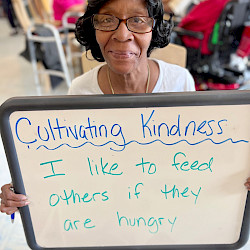 Cultivating Kindness
I like to feed
others if they
are hungry